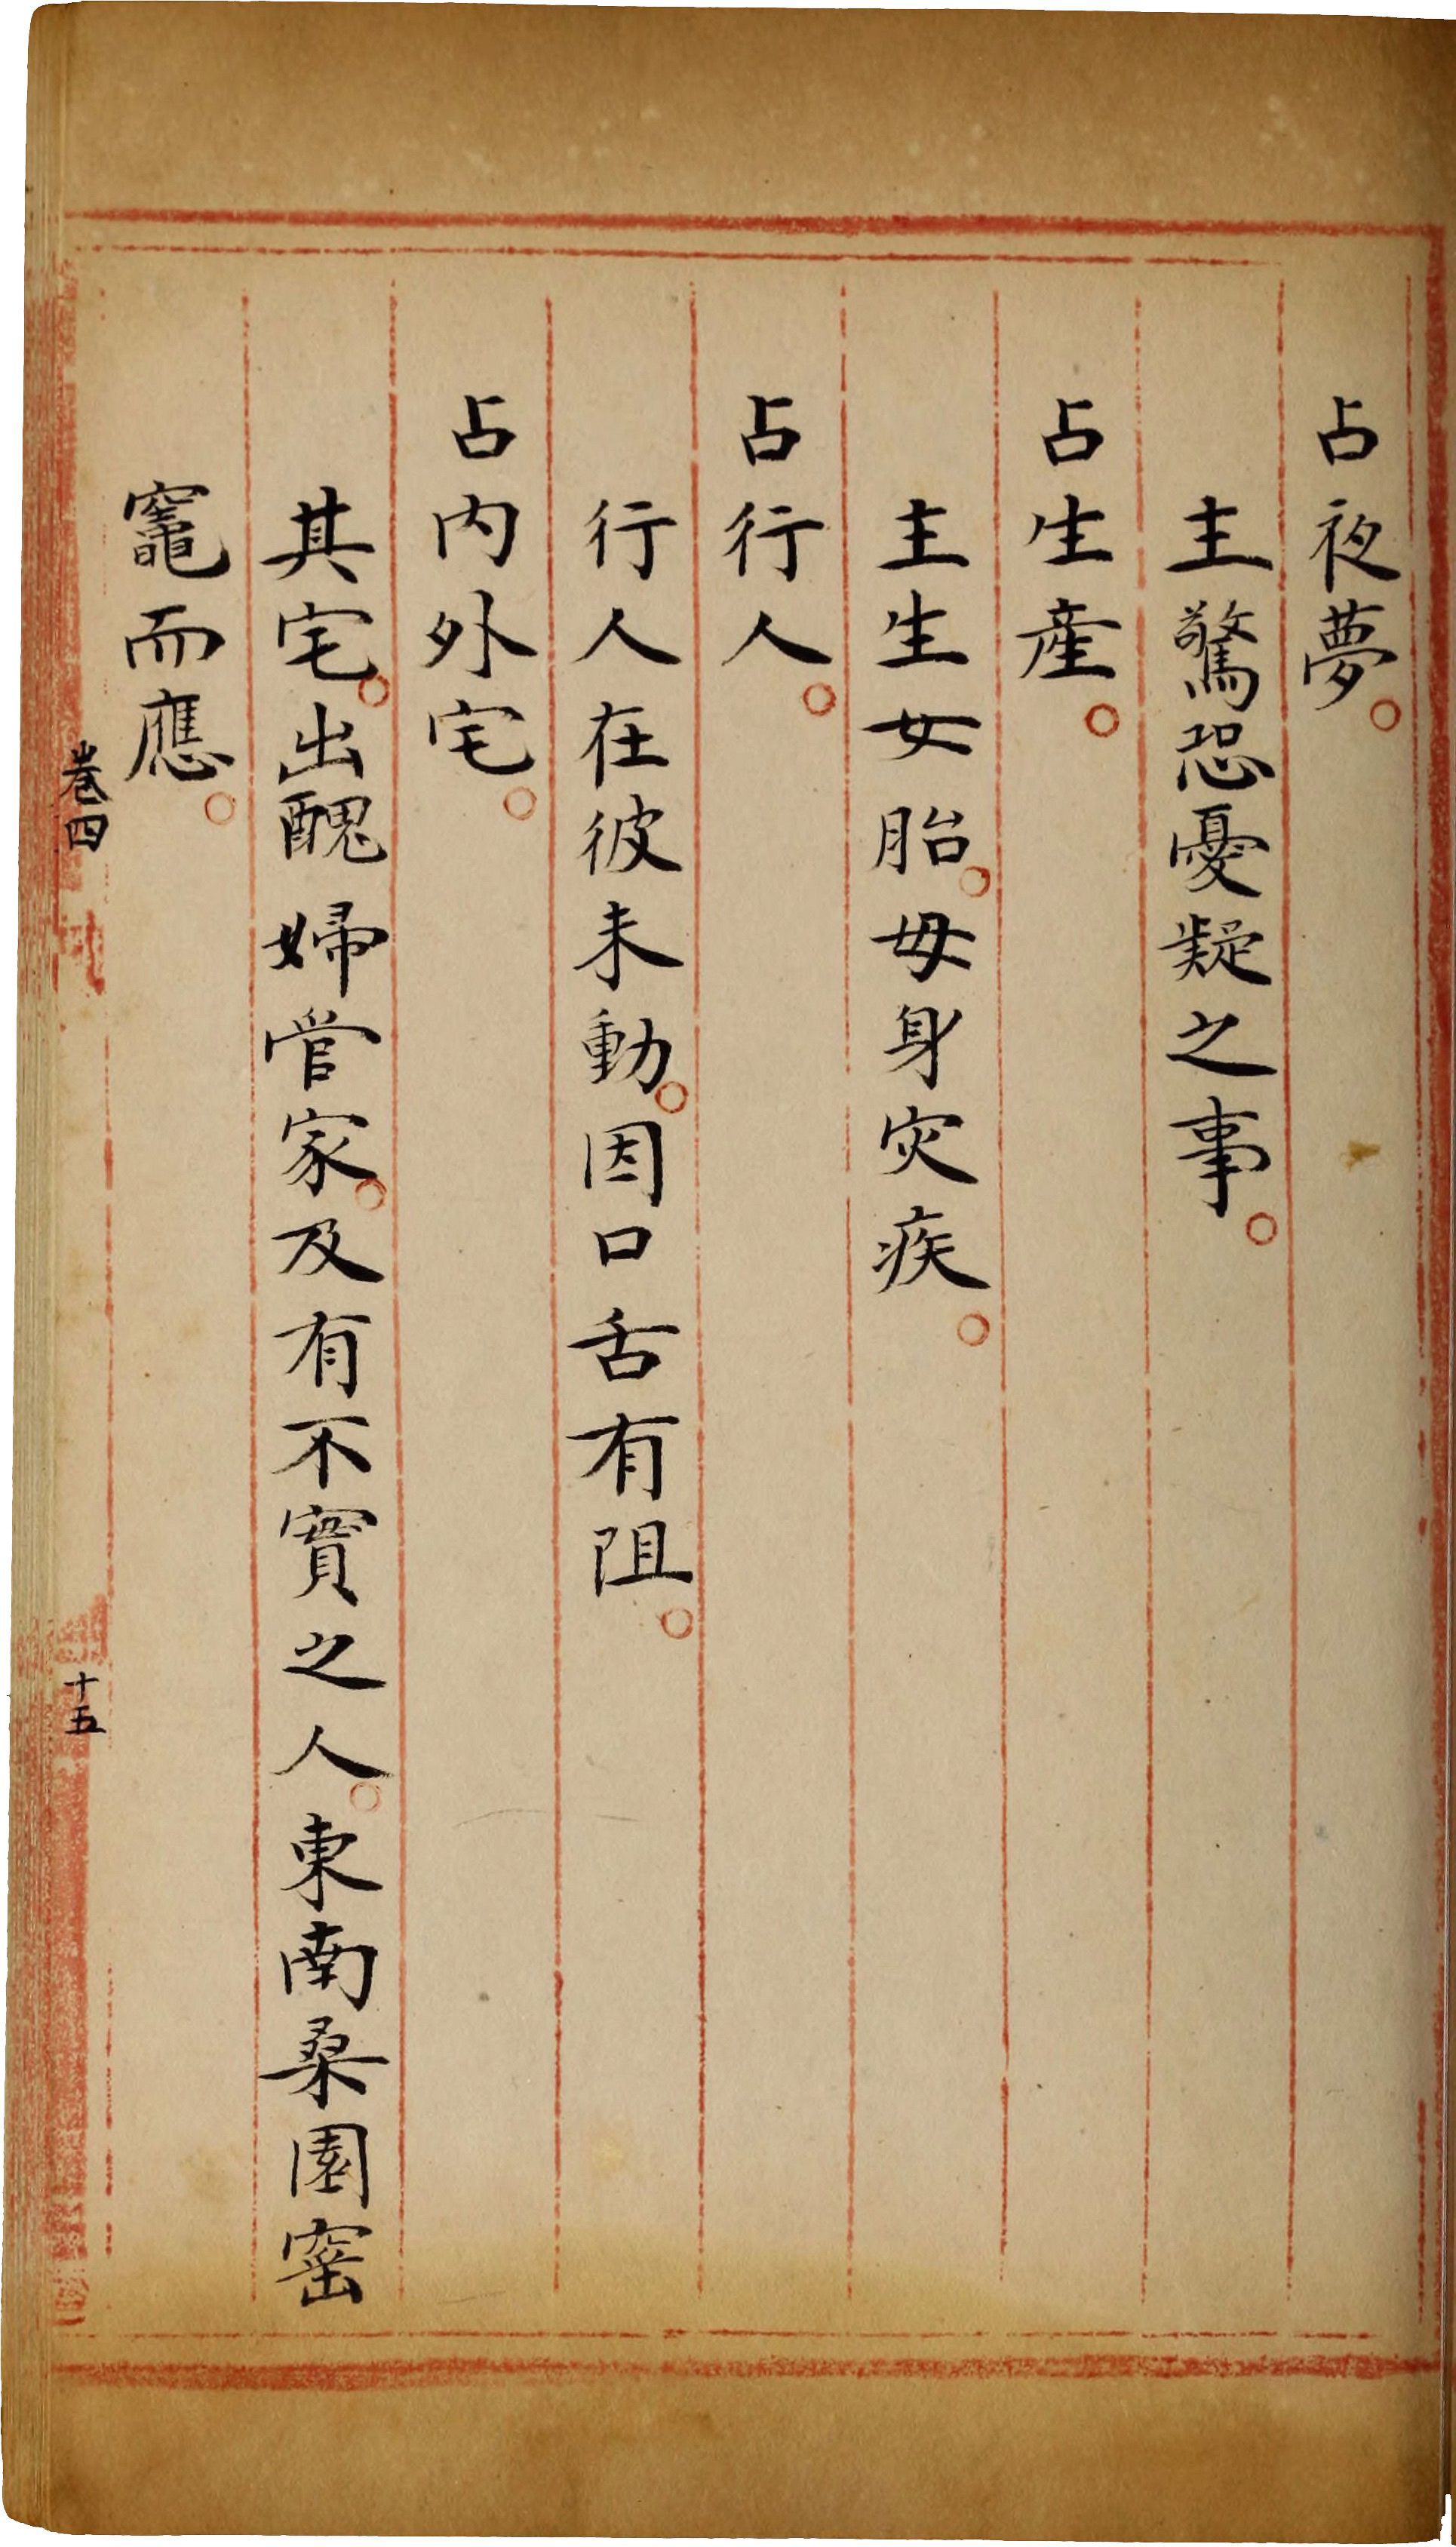 占夜夢。
主驚恐憂疑之事。
占生産。
主生女胎。母身灾疾。
占行人。
行人在彼未動。因口舌有阻。
占内外宅。
其宅。出醜婦管家。及有不實之人。東南桑園窑
竈而應。
卷四
十五